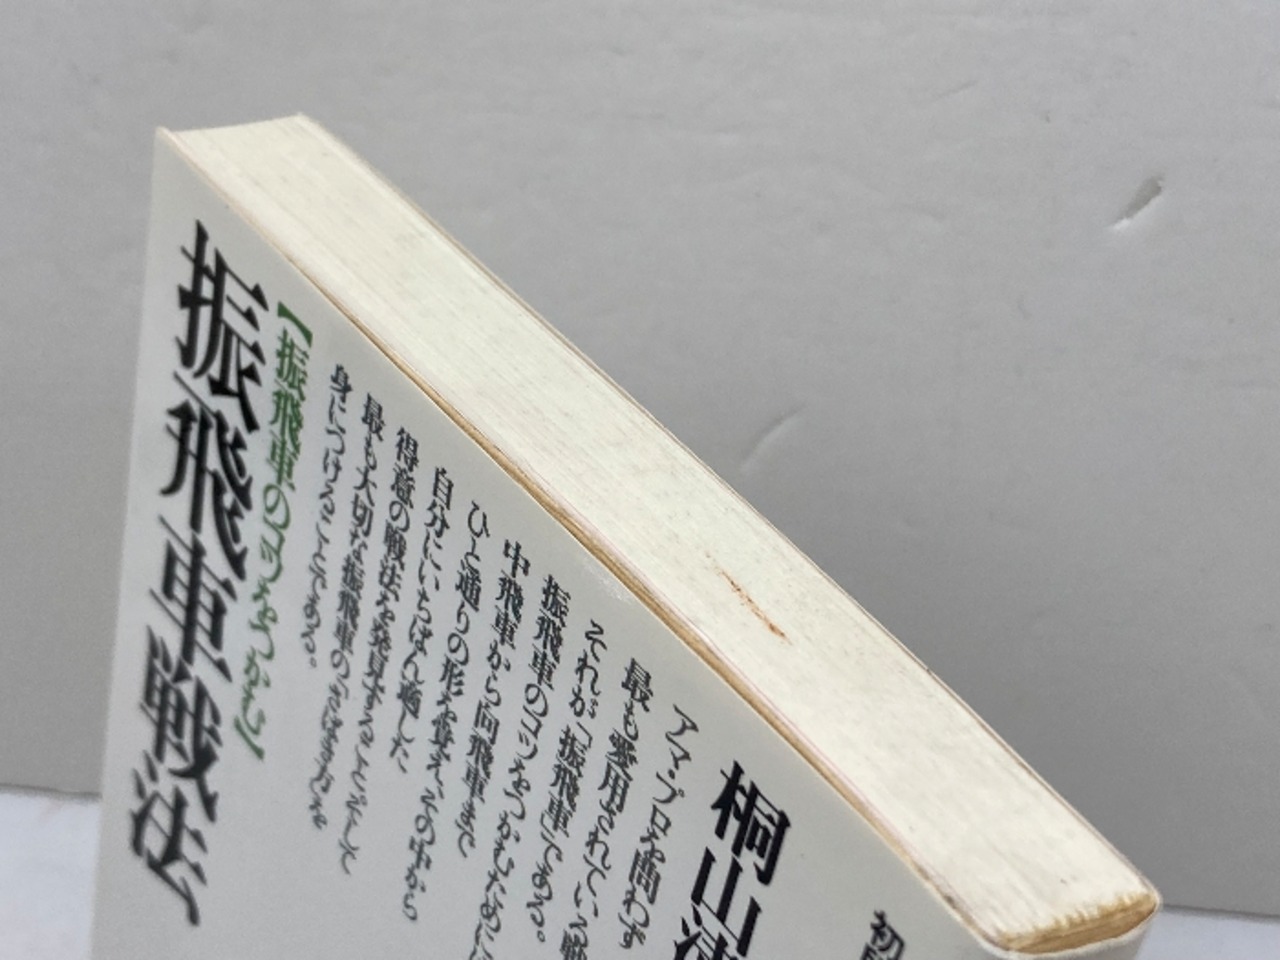 初
桐山清
アマ・プロを問わず
最も愛用されている戦
それが「振飛車」である。
振飛車のコツをつかむために
中飛車から向飛車まで
ひと通りの形を覚え、その中から
自分にいちばん適した
得意の戦法を発見することそして
最も大切な振飛車の
身につけることである。
【振飛車のコツをつかむ】
振飛車戦法